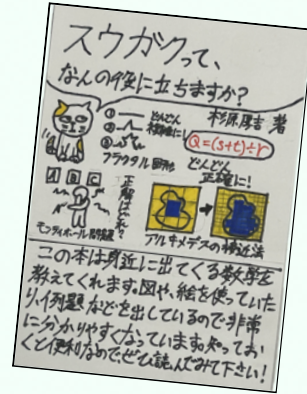 スウガクって、
なんの役に立ちますか?
杉原厚吉 著
① どんどん
② 複雑に!
③
フラクタル図形
Q=(s+t)÷r
どんどん
正確に!
A B C
正解はどれ?
モンティホール問題
アルキメデスの接近法
この本は身近に出てくる数学を
教えてくれます。図や、絵を使っていた
り、例題などを出しているので非常
に分かりやすくなっています。知ってお
くと便利なので、ぜひ読んでみて下さい!